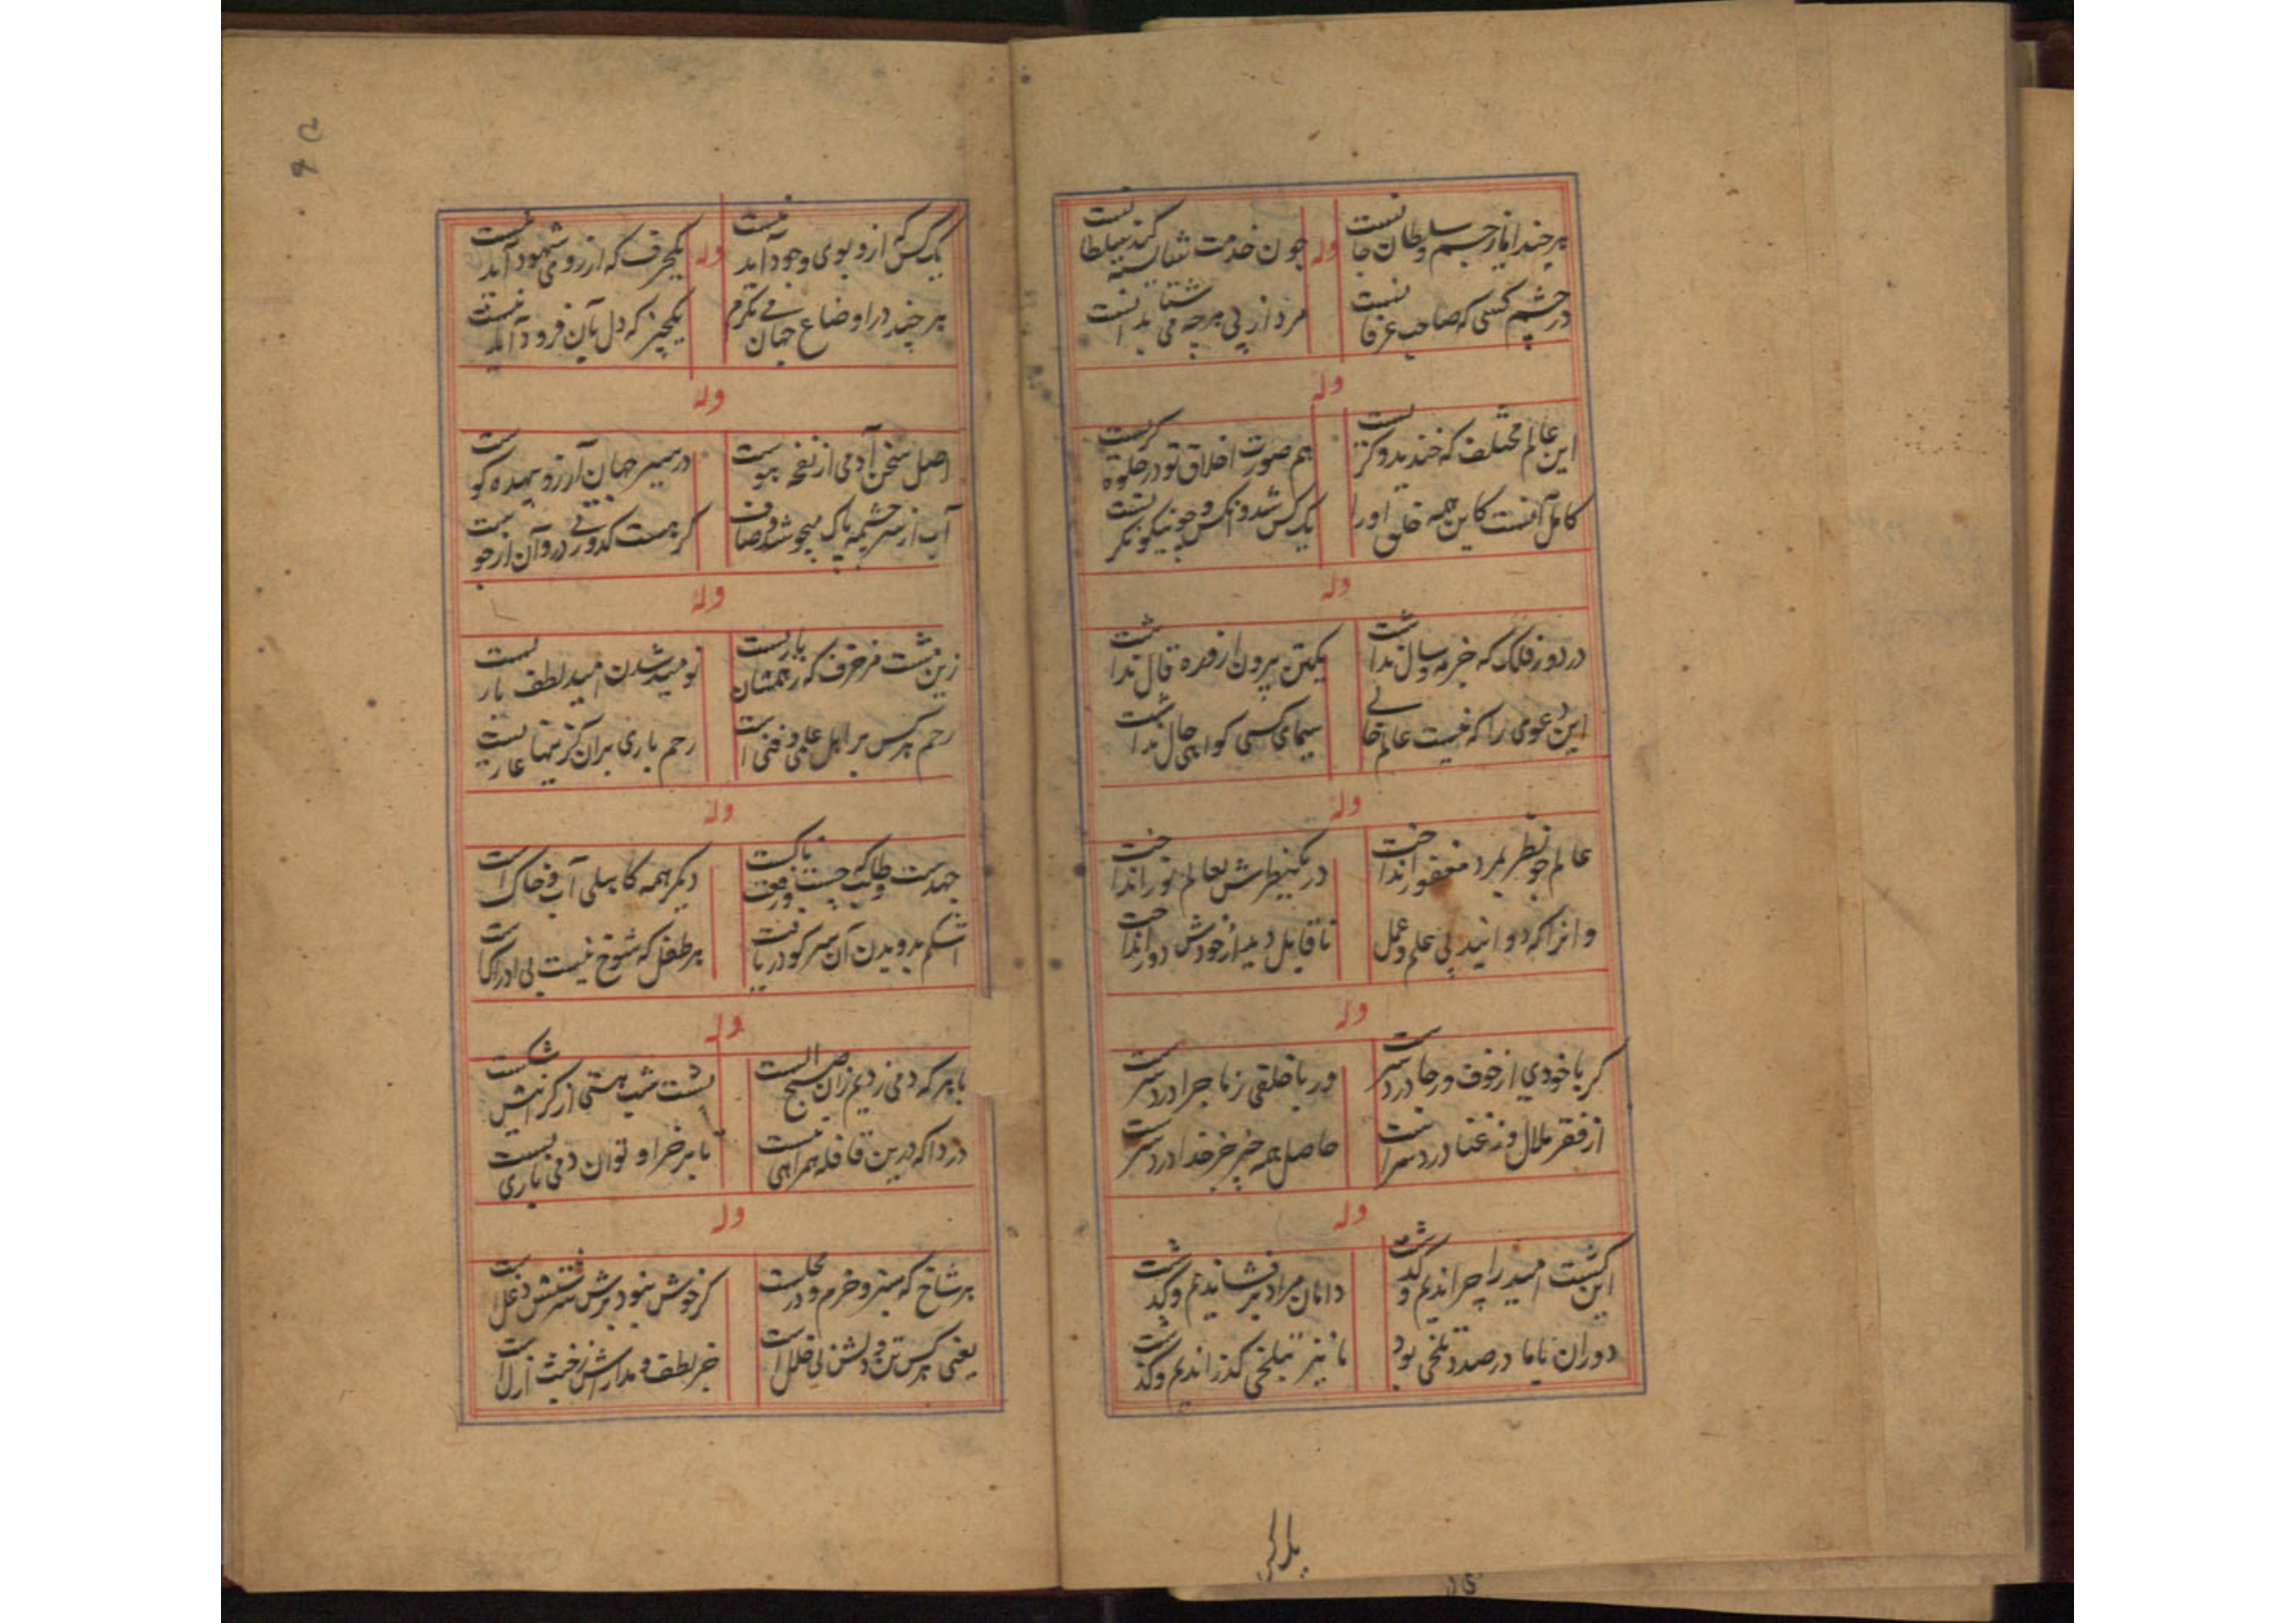 هر چند ایاز جسم و سلطان جانست
وله
چون خدمت شایسته کند سلطانست
در چشم کسی که صاحب عرفانست
مرد از پی هر چه می شتابد آنست
وله
این عالم مختلف که خندید و گریست
هم صورت اخلاق تو در جلوه گریست
کامل آنست کاین همه خلق او را
یک کس شد و آنکس چو نیکو نگریست
وله
در دور فلک که جز مه و سال نداشت
یکتن بیرون از قده قال نداشت
این دعوی را که نیست عالم خالی
سیمای کسی گواهی حال نداشت
وله
عالم چو نظر بمرد مغفور انداخت
در یک نظرش بعالم نور انداخت
وانرا که دوانید پی علم و عمل
ناقابل دید از خودش دور انداخت
وله
گر با خودی از خوف و رجا درد سرست
ور با خلقی ز ماجرا درد سرست
از فقر ملال و ز غنا درد سرست
حاصل همه چیز جز خدا درد سرست
وله
این کشت امید را چراندیم و گذشت
دامان مراد بر فشاندیم و گذشت
دوران با ما در صدد تلخی بود
ما نیز بتلخی گذراندیم و گذشت
یک کس
یک کس که ازو بوی وجود آید نیست
وله
یکحرف که از روی شهود آید نیست
هر چند در اوضاع جهان می نگرم
یکچیز که دل بآن فرود آید نیست
وله
اصل سخن آدمی از نفخه هوست
در سیر جهان آرزو بیهده گوست
آب از سر چشمه پاک میجوشد و صاف
گر هست کدورتی درو آن از جوست
وله
زین مشت مزخرف که رقمشان یاریست
نومید شدن امید لطف باریست
رحم هر کس بر اهل علمی و فنی است
رحم باری بر آن کزینها عاریست
وله
جهدست که طالب چست و رفت پاکست
دیگر همه کاهلی آب و خاک است
اشکم بدویدن آن سر کو دریافت
هر طفل که شوخ نیست بی ادراکست
وله
با هر که دمی زدیم زان صبح الست
پشت شب هستی از گرانیش شکست
دردا که درین قافله همراهی نیست
تا بر خر او توان دمی باری بست
وله
هر شاخ که سبز و خرم و در محلست
گر خوش نبود برش سرشتش دغلست
یعنی هر کس تن و دلش بی خلل است
جز لطف و مدارایش ز خبث ازلست